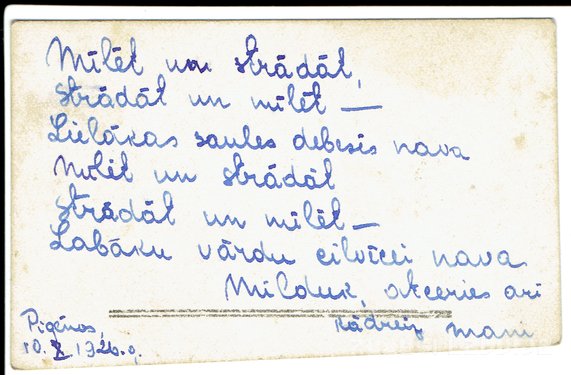 Mīlēt un strādāt,
strādāt un mīlēt —
Lielākas saules debesis nava
Mīlēt un strādāt
Strādāt un mīlēt —
Labāku vārdu cilvīcei nava
Milduk, atceries arī
kādreiz mani
Pigēnos,
10. X 1926. g.